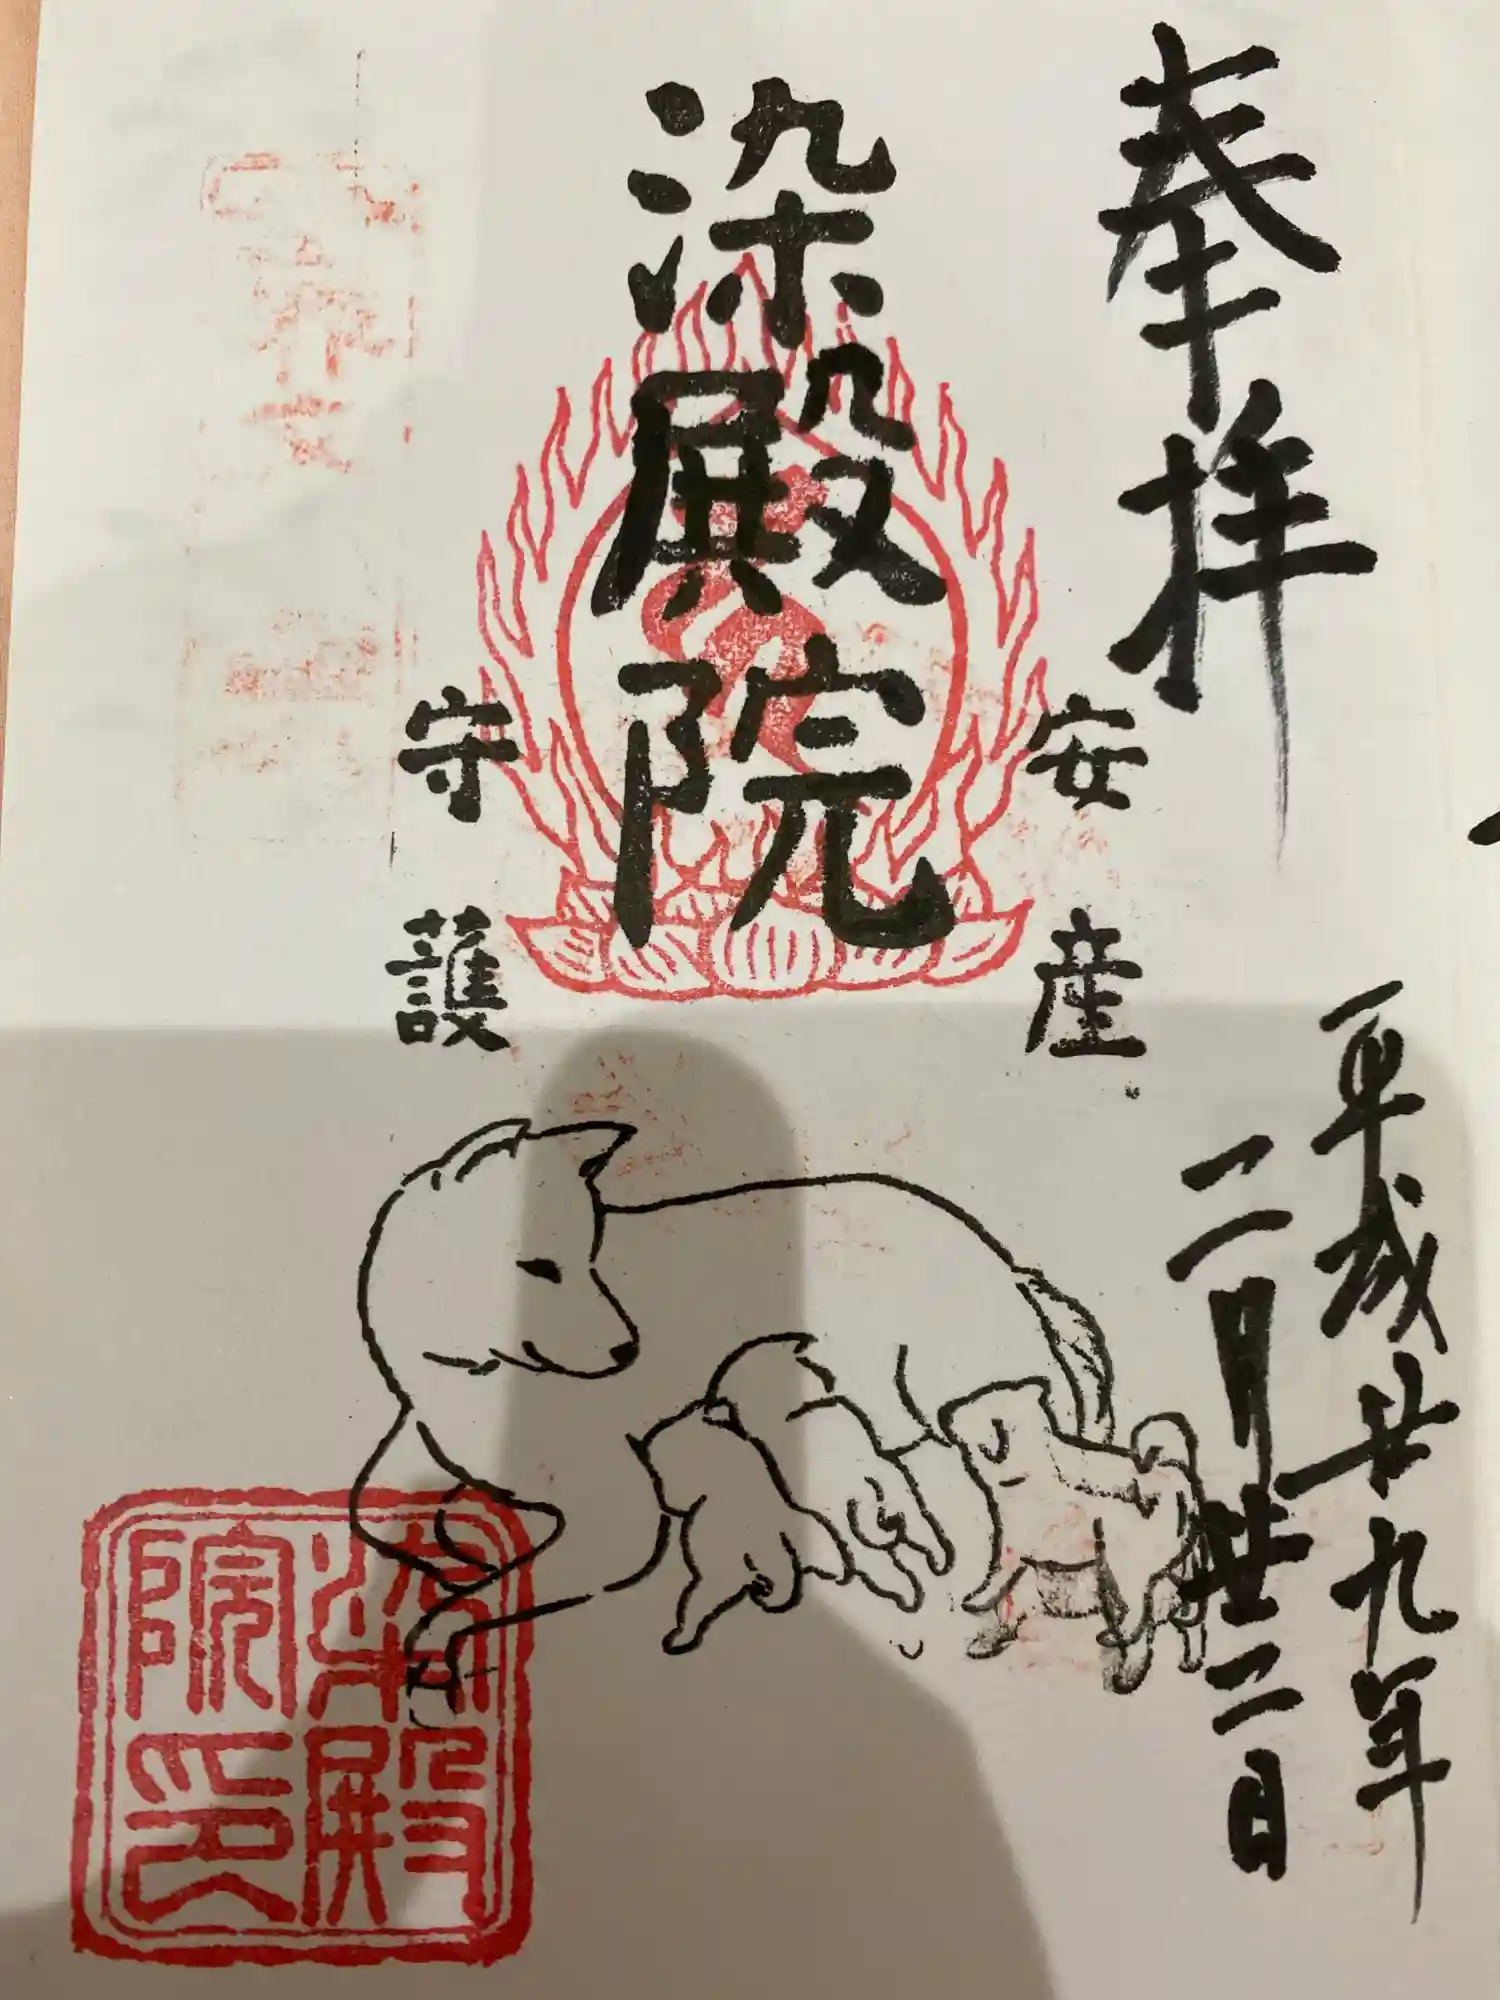 奉拝
平成廿九年
二月廿二日
安産
染殿院
守護
染殿
院印